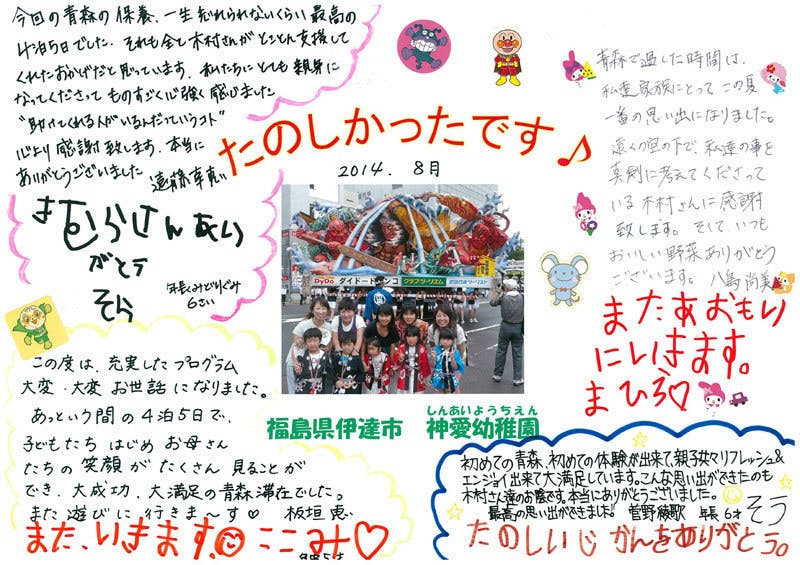 今回の青森の保養、一生忘れられないくらい最高の
4泊5日でした。それも全て木村さんがとことん支援して
くれたおかげだと思っています。私たちにとても親身に
なってくださってものすごく心強く感じました
"助けてくれる人がいるんだっていうコト"
心より感謝致します。本当に
ありがとうございました 遠藤
きむらさんあり
がとう
そら
年長みどりぐみ
6さい
たのしかったです♪
2014. 8月
DyDo ダイドードリンコ クラブツーリズム
青森で過した時間は、
私達家族にとってこの夏
一番の思い出になりました。
遠くの空の下で、私達の事を
真剣に考えてくださって
いる木村さんに感謝
致します。そしていつも
おいしい野菜ありがとう
ございます。 八島尚美
またあおもり
にいきます。
まひろ♡
この度は、充実したプログラム
大変・大変お世話になりました。
あっという間の4泊5日で、
子どもたちはじめお母さん
たちの笑顔がたくさん見ることが
でき、大成功、大満足の青森滞在でした。
また遊びに行きま〜す♡ 板垣恵
また、いきます。ここみ♡
福島県伊達市 神愛幼稚園
しんあいようちえん
初めての青森、初めての体験が出来て、親子共々リフレッシュ&
エンジョイ出来て大満足しています。こんな思い出ができたのも
木村さん達のお陰です。本当にありがとうございました。
最高の思い出ができました! 菅野綾歌 年長 6才 そう
たのしいじかんをありがとう。